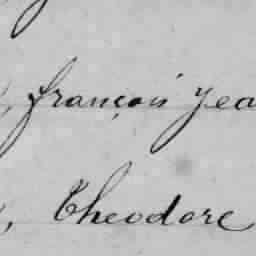 , françois Jea
, Theodore